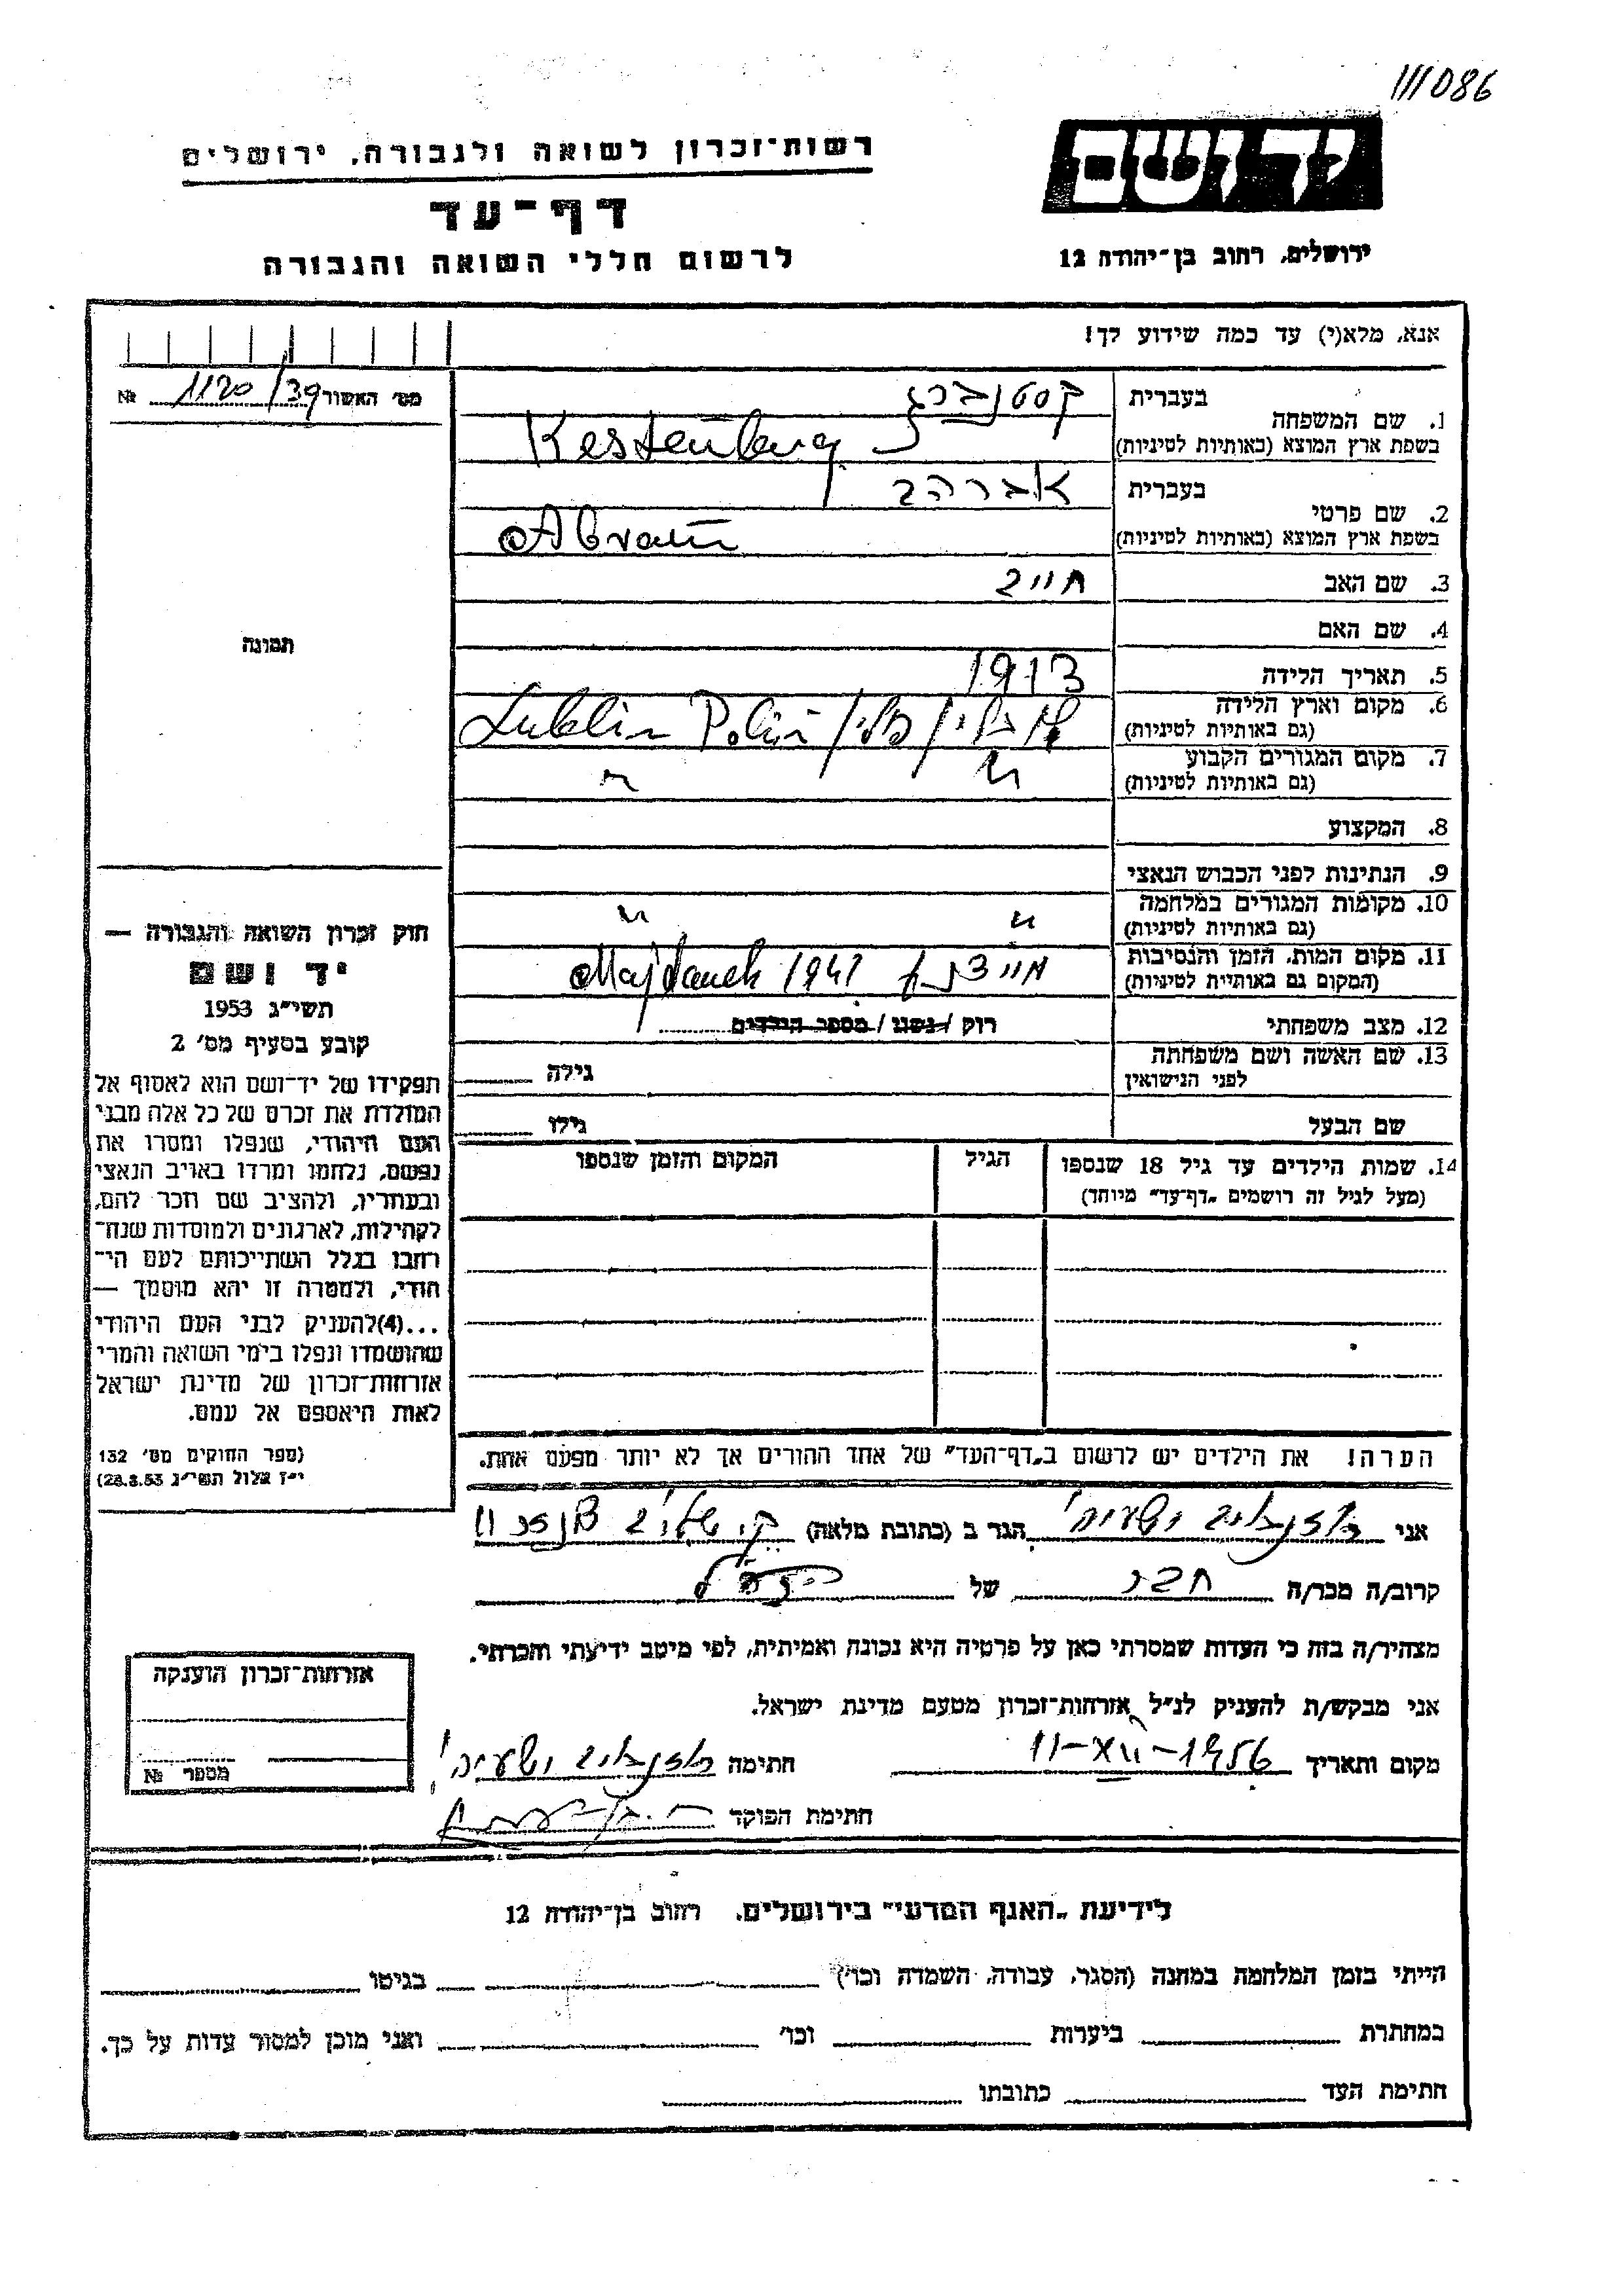 111086
יד ושם
ירושלים, רחוב בן־יהודה 12
רשות־זכרון לשואה ולגבורה, ירושלים
דף־עד
לרשום חללי השואה והגבורה
אנא, מלא(י) עד כמה שידוע לך!
מס׳ האשור 1120/39 №
1. שם המשפחה
בעברית קסטנברג
בשפת ארץ המוצא (באותיות לטיניות) Kestenberg
2. שם פרטי
בעברית אברהם
בשפת ארץ המוצא (באותיות לטיניות) Abram
3. שם האב חיים
4. שם האם
5. תאריך הלידה 1913
6. מקום וארץ הלידה
(גם באותיות לטיניות) לובלין / פולין / Lublin
7. מקום המגורים הקבוע "
(גם באותיות לטיניות) "
8. המקצוע
9. הנתינות לפני הכבוש הנאצי
10. מקומות המגורים במלחמה "
(גם באותיות לטיניות) "
11. מקום המות, הזמן והנסיבות
(המקום גם באותיות לטיניות) Majdanek
12. מצב משפחתי רווק / נשוי / מספר הילדים
13. שם האשה ושם משפחתה
לפני הנישואין גילה
שם הבעל גילו
14. שמות הילדים עד גיל 18 שנספו
(מעל לגיל זה רושמים „דף־עד״ מיוחד)
הגיל
המקום והזמן שנספו
הערה! את הילדים יש לרשום ב„דף־העד״ של אחד ההורים אך לא יותר מפעם אחת.
תמונה
חוק זכרון השואה והגבורה —
יד ושם
תשי״ג 1953
קובע בסעיף מס׳ 2
תפקידו של יד־ושם הוא לאסוף אל
המולדת את זכרם של כל אלה מבני
העם היהודי, שנפלו ומסרו את
נפשם, נלחמו ומרדו באויב הנאצי
ובעוזריו, ולהציב שם וזכר להם,
לקהילות, לארגונים ולמוסדות שנח־
רבו בגלל השתייכותם לעם הי־
הודי, ולמטרה זו יהא מוסמך —
...(4) להעניק לבני העם היהודי
שהושמדו ונפלו בימי השואה והמרי
אזרחות־זכרון של מדינת ישראל
לאות היאספם אל עמם.
(ספר החוקים מס׳ 132
י״ז אלול תשי״ג 28.8.53)
אני ישעיהו הגר ב (כתובת מלאה)
קרוב/ה מכר/ה חבר של
מצהיר/ה בזה כי העדות שמסרתי כאן על פרטיה היא נכונה ואמיתית, לפי מיטב ידיעתי והכרתי.
אני מבקש/ת להעניק לנ״ל אזרחות־זכרון מטעם מדינת ישראל.
מקום ותאריך 11-XII-1956 חתימה ישעיהו
חתימת הפוקד
אזרחות־זכרון הוענקה
מספר №
לידיעת „האגף המדעי״ בירושלים, רחוב בן־יהודה 12
הייתי בזמן המלחמה במחנה (הסגר, עבודה, השמדה וכו׳) בגיטו
במחתרת ביערות וכו׳ ואני מוכן למסור עדות על כך.
חתימת העד כתובתו